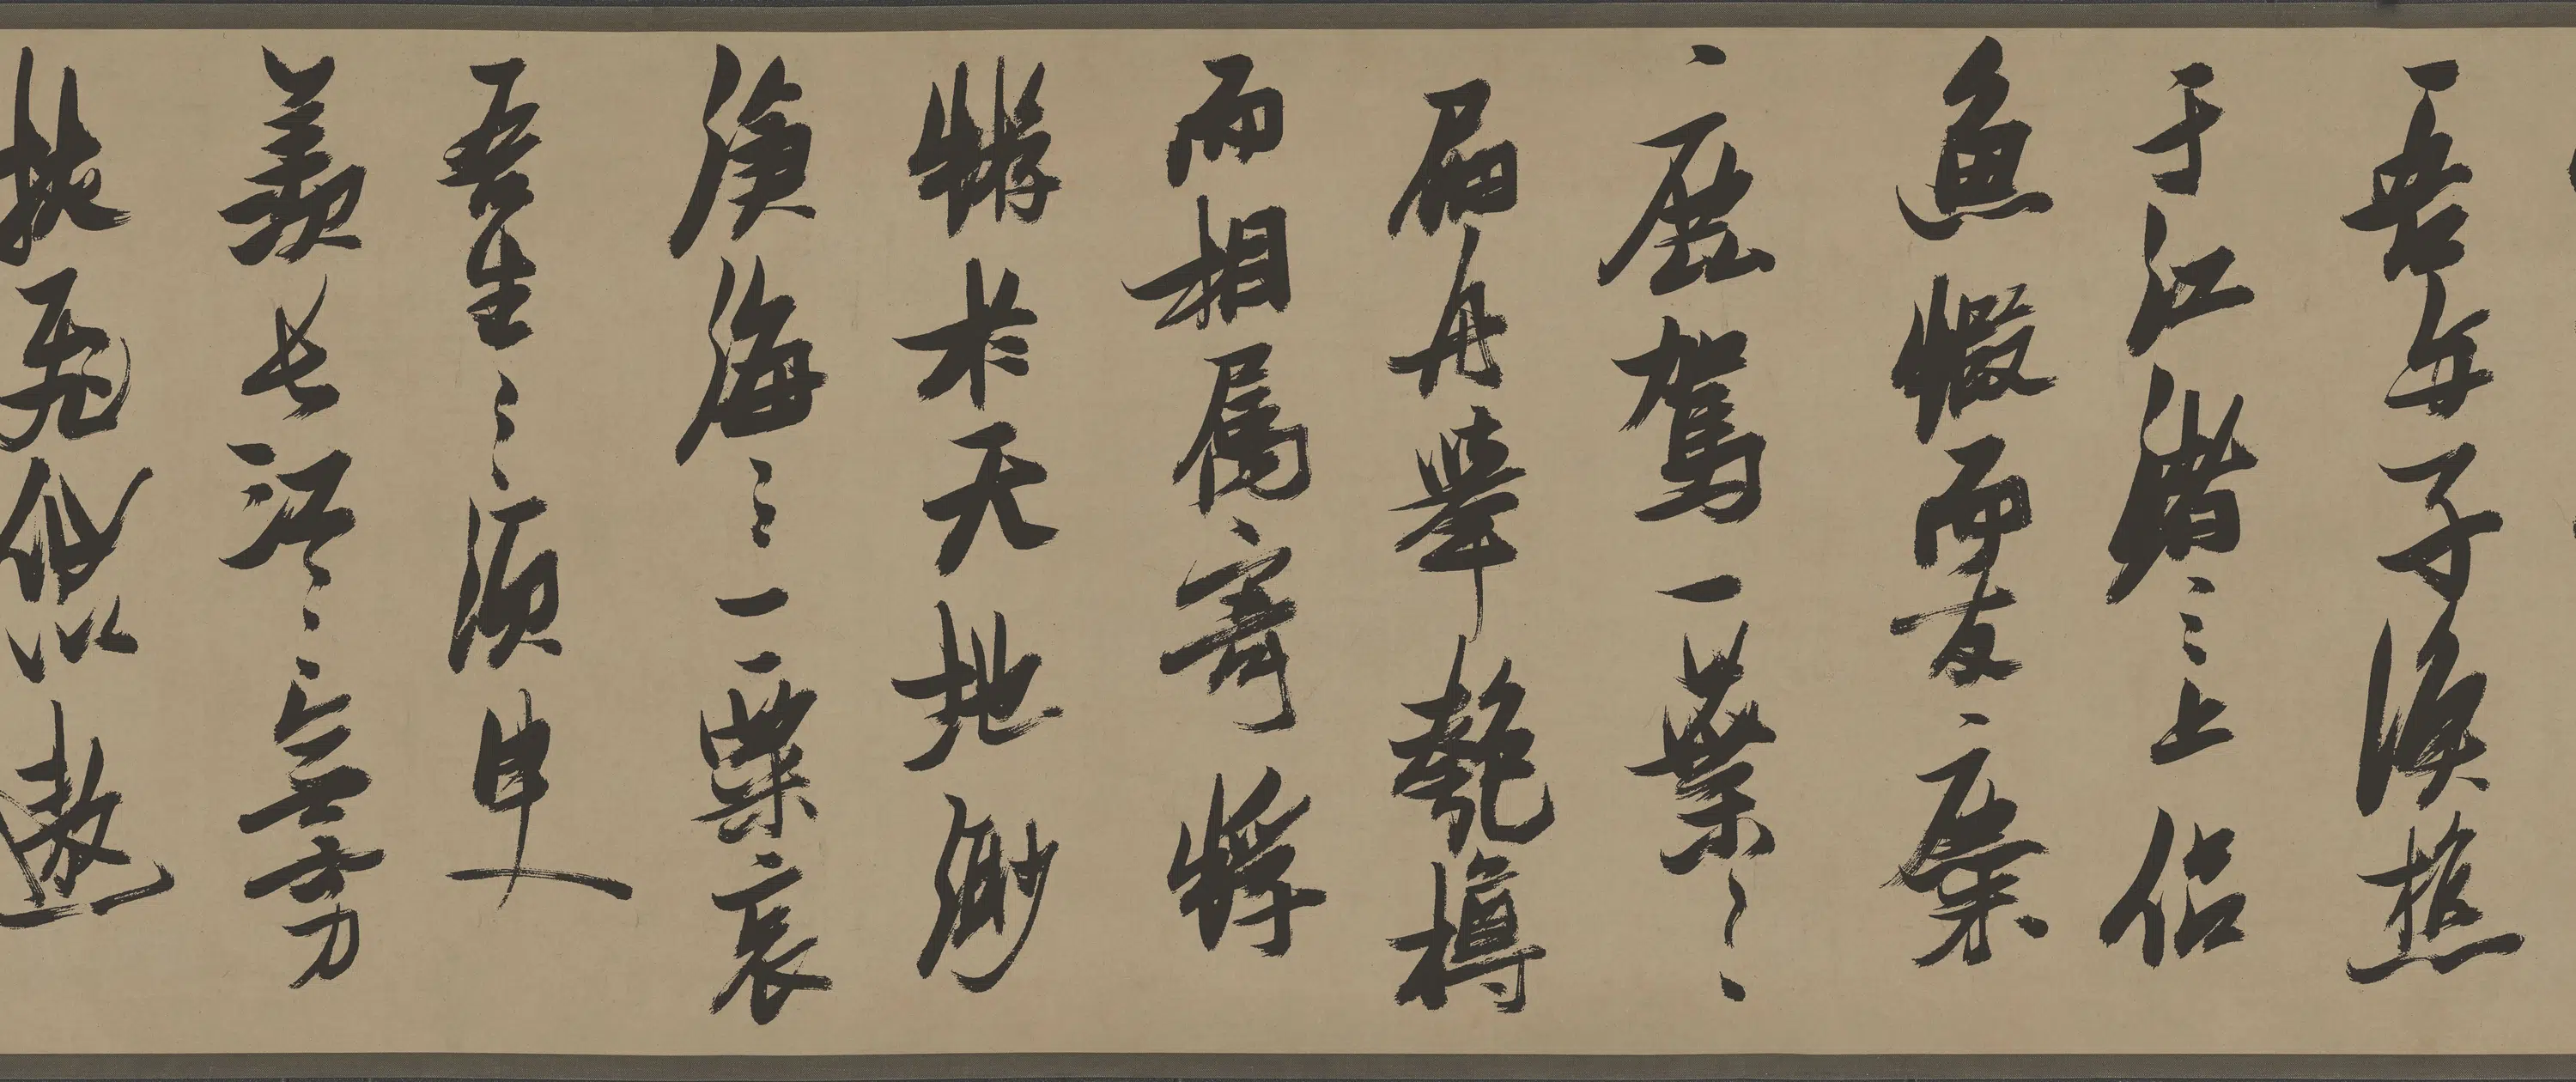 吾与子漁樵
于江渚之上侣
魚蝦而友麋
鹿駕一葉之
扁舟舉匏樽
而相属寄蜉
蝣於天地渺
滄海之一粟哀
吾生之須臾
羨長江之無穷
挾飛仙以遨